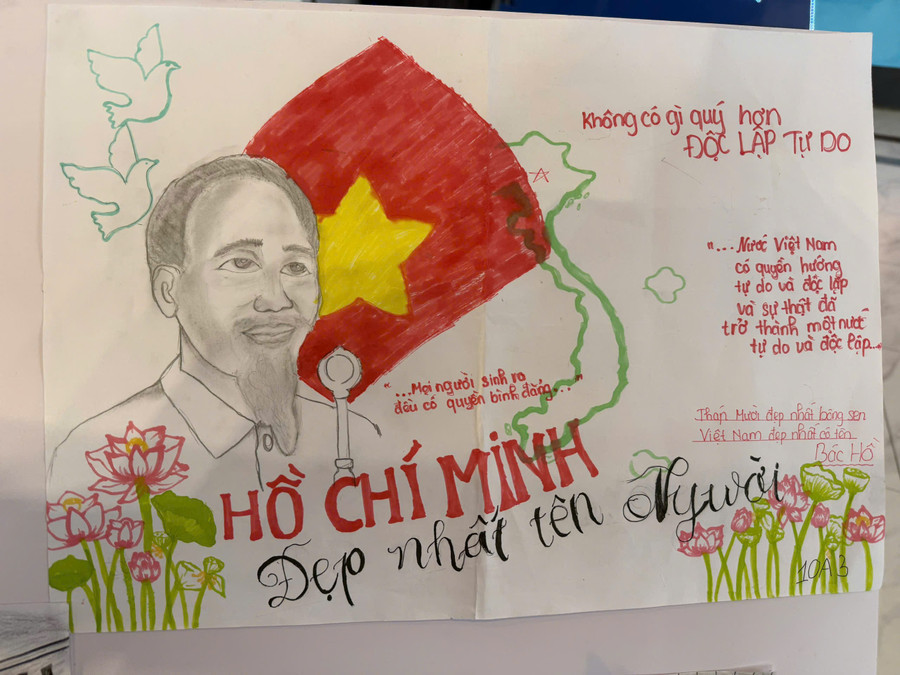 Không có gì quý hơn
ĐỘC LẬP TỰ DO
"...Nước Việt Nam
có quyền hưởng
tự do và độc lập
và sự thật đã
trở thành một nước
tự do và độc lập..."
"...Mọi người sinh ra
đều có quyền bình đẳng..."
Tháp Mười đẹp nhất bông sen
Việt Nam đẹp nhất có tên
Bác Hồ
HỒ CHÍ MINH
Đẹp nhất tên Người
10A3